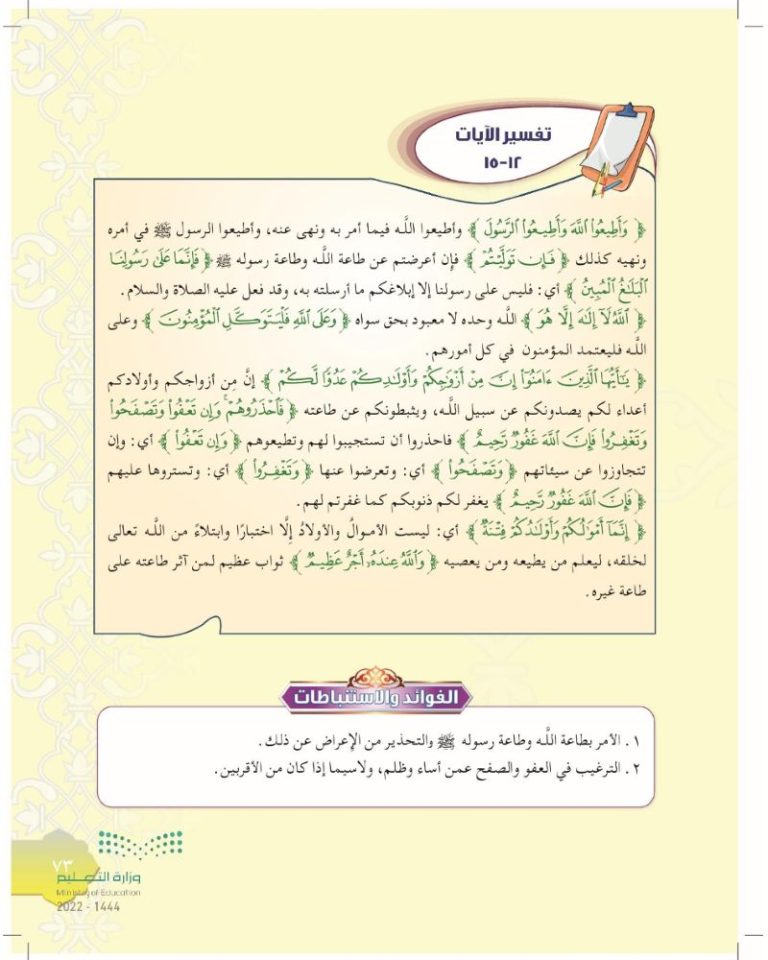 تفسير الآيات
١٢-١٥
﴿ وَأَطِيعُوا۟ ٱللَّهَ وَأَطِيعُوا۟ ٱلرَّسُولَ ﴾ وأطيعوا اللَّـه فيما أمر به ونهى عنه، وأطيعوا الرسول ﷺ في أمره
ونهيه كذلك ﴿ فَإِن تَوَلَّيْتُمْ ﴾ فإن أعرضتم عن طاعة اللَّـه وطاعة رسوله ﷺ ﴿ فَإِنَّمَا عَلَىٰ رَسُولِنَا
ٱلْبَلَـٰغُ ٱلْمُبِينُ ﴾ أي: فليس على رسولنا إلا إبلاغكم ما أرسلته به، وقد فعل عليه الصلاة والسلام.
﴿ ٱللَّهُ لَآ إِلَـٰهَ إِلَّا هُوَ ﴾ اللَّـه وحده لا معبود بحق سواه ﴿ وَعَلَى ٱللَّهِ فَلْيَتَوَكَّلِ ٱلْمُؤْمِنُونَ ﴾ وعلى
اللَّـه فليعتمد المؤمنون في كل أمورهم.
﴿ يَـٰٓأَيُّهَا ٱلَّذِينَ ءَامَنُوٓا۟ إِنَّ مِنْ أَزْوَٰجِكُمْ وَأَوْلَـٰدِكُمْ عَدُوًّا لَّكُمْ ﴾ إنَّ مِن أزواجكم وأولادكم
أعداء لكم يصدونكم عن سبيل اللَّـه، ويثبطونكم عن طاعته ﴿ فَٱحْذَرُوهُمْ ۚ وَإِن تَعْفُوا۟ وَتَصْفَحُوا۟
وَتَغْفِرُوا۟ فَإِنَّ ٱللَّهَ غَفُورٌ رَّحِيمٌ ﴾ فاحذروا أن تستجيبوا لهم وتطيعوهم ﴿ وَإِن تَعْفُوا۟ ﴾ أي: وإن
تتجاوزوا عن سيئاتهم ﴿ وَتَصْفَحُوا۟ ﴾ أي: وتعرضوا عنها ﴿ وَتَغْفِرُوا۟ ﴾ أي: وتستروها عليهم
﴿ فَإِنَّ ٱللَّهَ غَفُورٌ رَّحِيمٌ ﴾ يغفر لكم ذنوبكم كما غفرتم لهم.
﴿ إِنَّمَآ أَمْوَٰلُكُمْ وَأَوْلَـٰدُكُمْ فِتْنَةٌ ﴾ أي: ليست الأموالُ والأولادُ إلَّا اختبارًا وابتلاءً من اللَّـه تعالى
لخلقه، ليعلم من يطيعه ومن يعصيه ﴿ وَٱللَّهُ عِندَهُۥٓ أَجْرٌ عَظِيمٌ ﴾ ثواب عظيم لمن آثر طاعته على
طاعة غيره.
الفوائد والاستنباطات
١. الأمر بطاعة اللَّـه وطاعة رسوله ﷺ والتحذير من الإعراض عن ذلك.
٢. الترغيب في العفو والصفح عمن أساء وظلم، ولاسيما إذا كان من الأقربين.
٧٣
وزارة التعليم
Ministry of Education
2022 - 1444